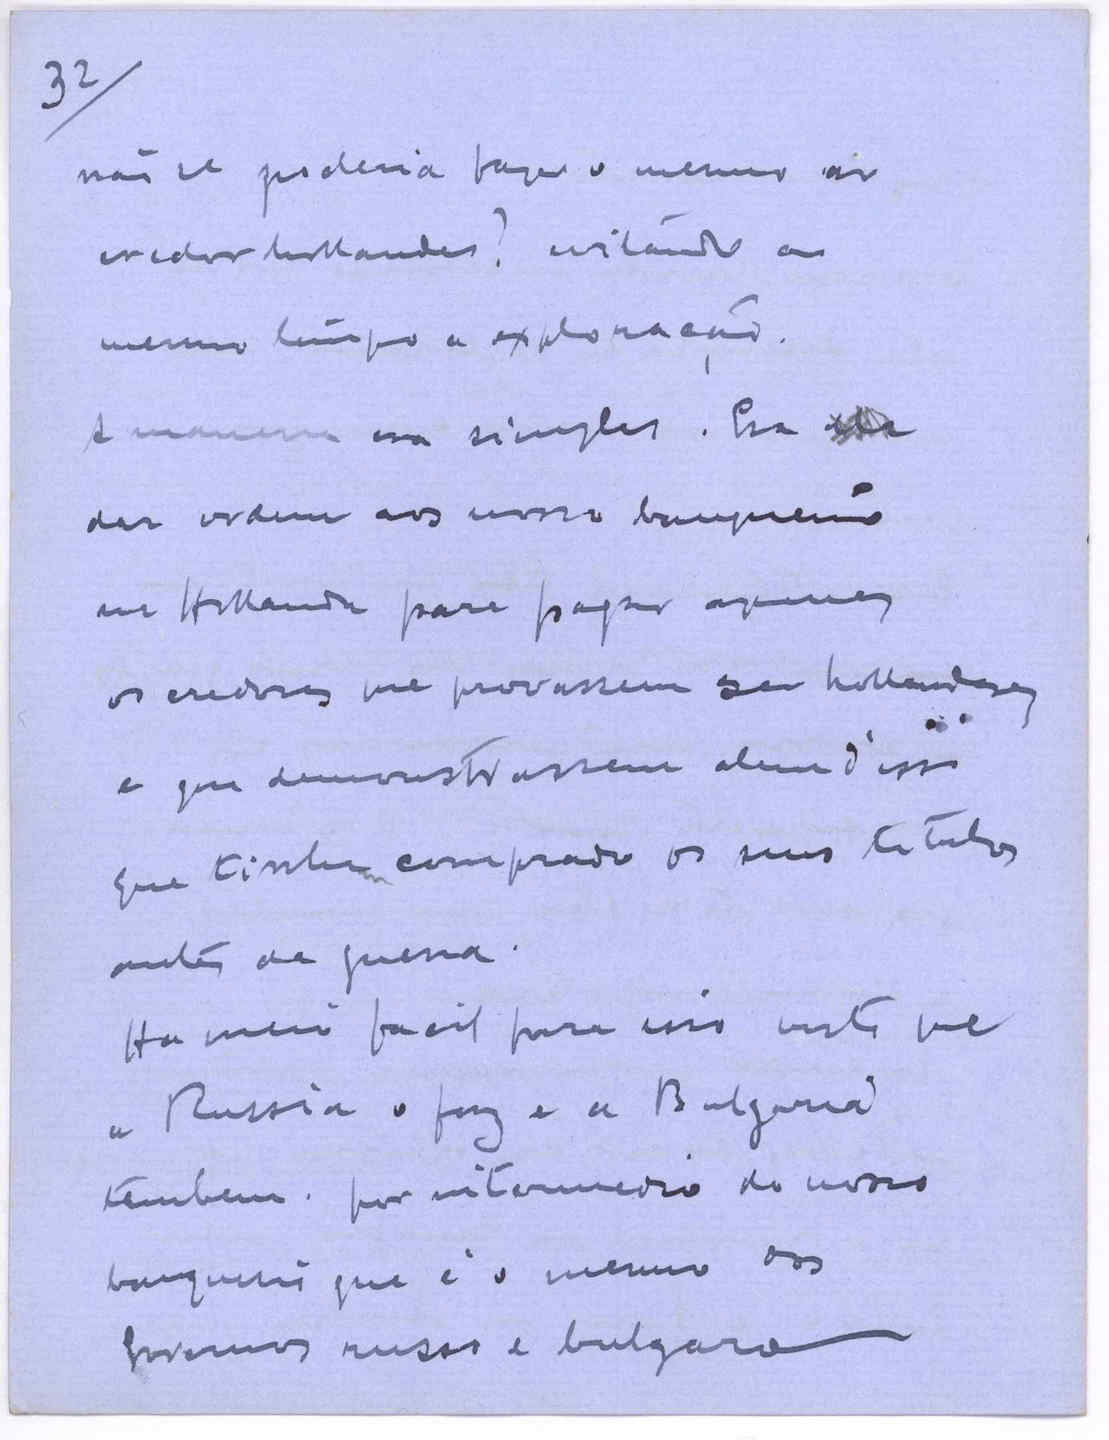 32/
não se poderia fazer o mesmo ao
credor hollandes? evitando ao
mesmo tempo a exploração.
A maneira era simples. Era
dar ordem aos nosso banqueiro
na Hollanda para pagar apenas
os credores que provassem ser hollandezes
e que demonstrassem alem d'isso
que tinham comprado os seus titulos
antes da guerra.
Ha meio facil para isso visto que
a Russia o faz e a Bulgaria
tambem. por intermedio do nosso
banqueiro que é o mesmo dos
Governos russo e bulgaro